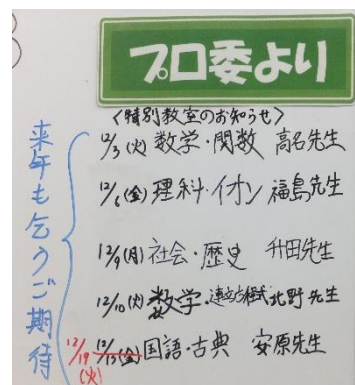 プロ委より
<特別教室のお知らせ>
12/3(火) 数学・関数 高名先生
12/6(金) 理科・イオン 福島先生
12/9(月) 社会・歴史 升田先生
12/10(火) 数学・連立方程式 北野先生
12/13(金) 国語・古典 安原先生
12/19(火)
来年も乞うご期待